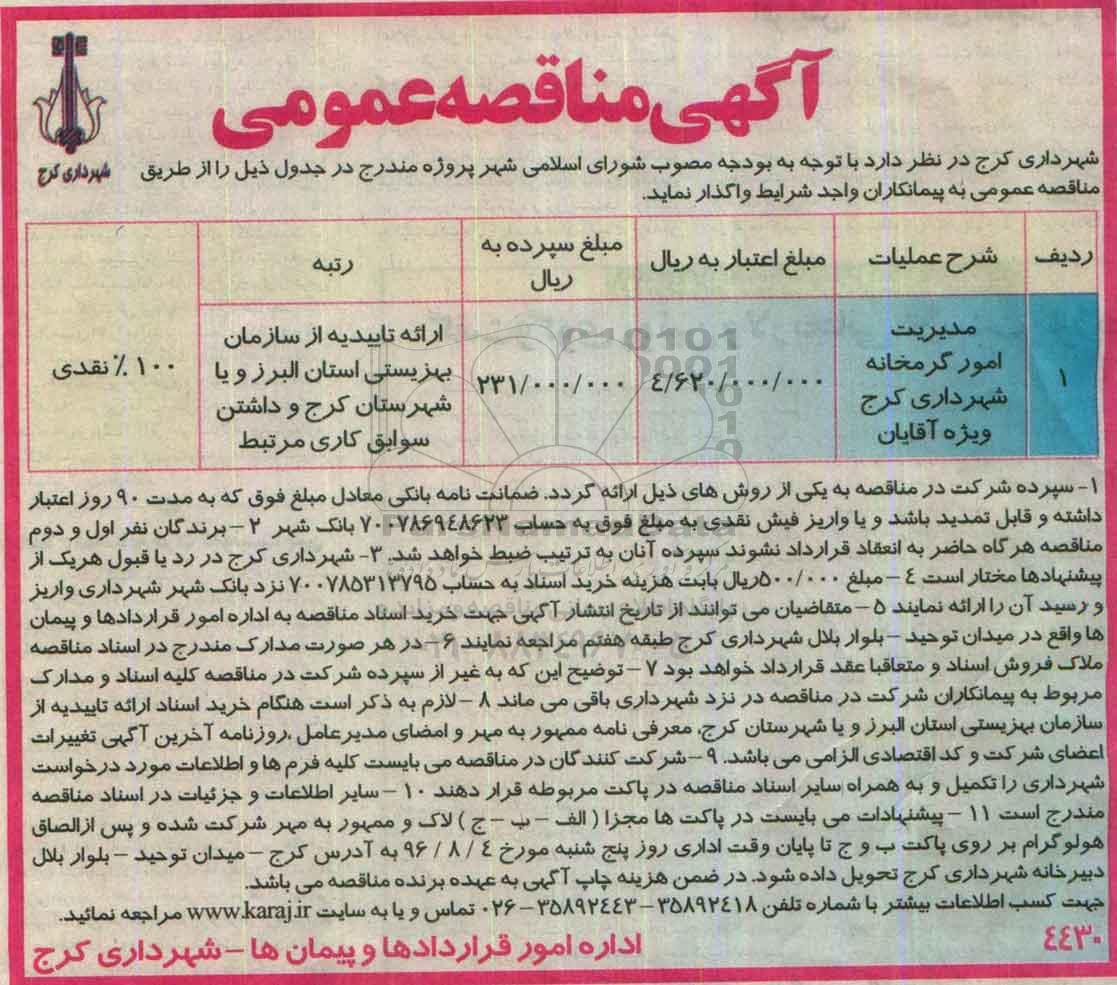 آگهی مناقصه عمومی
شهرداری کرج
شهرداری کرج در نظر دارد با توجه به بودجه مصوب شورای اسلامی شهر پروژه مندرج در جدول ذیل را از طریق
مناقصه عمومی به پیمانکاران واجد شرایط واگذار نماید.
ردیف
شرح عملیات
مبلغ اعتبار به ریال
مبلغ سپرده به
ریال
رتبه
۱
مدیریت
امور گرمخانه
شهرداری کرج
ویژه آقایان
۴/۶۲۰/۰۰۰/۰۰۰
۲۳۱/۰۰۰/۰۰۰
ارائه تاییدیه از سازمان
بهزیستی استان البرز و یا
شهرستان کرج و داشتن
سوابق کاری مرتبط
۱۰۰ ٪ نقدی
۱- سپرده شرکت در مناقصه به یکی از روش های ذیل ارائه گردد. ضمانت نامه بانکی معادل مبلغ فوق که به مدت ۹۰ روز اعتبار
داشته و قابل تمدید باشد و یا واریز فیش نقدی به مبلغ فوق به حساب ۷۰۰۷۸۶۹۴۸۶۲۳ بانک شهر ۲ – برندگان نفر اول و دوم
مناقصه هرگاه حاضر به انعقاد قرارداد نشوند سپرده آنان به ترتیب ضبط خواهد شد. ۳- شهرداری کرج در رد یا قبول هریک از
پیشنهادها مختار است ۴ – مبلغ ۵۰۰/۰۰۰ریال بابت هزینه خرید اسناد به حساب ۷۰۰۷۸۵۳۱۳۷۹۵ نزد بانک شهر شهرداری واریز
و رسید آن را ارائه نمایند ۵ – متقاضیان می توانند از تاریخ انتشار آگهی جهت خرید اسناد مناقصه به اداره امور قراردادها و پیمان
ها واقع در میدان توحید – بلوار بلال شهرداری کرج طبقه هفتم مراجعه نمایند ۶ – در هر صورت مدارک مندرج در اسناد مناقصه
ملاک فروش اسناد و متعاقبا عقد قرارداد خواهد بود ۷ – توضیح این که به غیر از سپرده شرکت در مناقصه کلیه اسناد و مدارک
مربوط به پیمانکاران شرکت در مناقصه در نزد شهرداری باقی می ماند ۸ – لازم به ذکر است هنگام خرید اسناد ارائه تاییدیه از
سازمان بهزیستی استان البرز و یا شهرستان کرج، معرفی نامه ممهور به مهر و امضای مدیرعامل ،روزنامه آخرین آگهی تغییرات
اعضای شرکت و کد اقتصادی الزامی می باشد. ۹ – شرکت کنندگان در مناقصه می بایست کلیه فرم ها و اطلاعات مورد درخواست
شهرداری را تکمیل و به همراه سایر اسناد مناقصه در پاکت مربوطه قرار دهند ۱۰ – سایر اطلاعات و جزئیات در اسناد مناقصه
مندرج است ۱۱ – پیشنهادات می بایست در پاکت ها مجزا ( الف – ب – ج ) لاک و ممهور به مهر شرکت شده و پس ازالصاق
هولوگرام بر روی پاکت ب و ج تا پایان وقت اداری روز پنج شنبه مورخ ۴ / ۸ / ۹۶ به آدرس کرج – میدان توحید – بلوار بلال
دبیرخانه شهرداری کرج تحویل داده شود. در ضمن هزینه چاپ آگهی به عهده برنده مناقصه می باشد.
جهت کسب اطلاعات بیشتر با شماره تلفن ۳۵۸۹۲۴۱۸ – ۳۵۸۹۲۴۴۳ – ۰۲۶ تماس و یا به سایت www.karaj.ir مراجعه نمائید.
۴۴۳۰
اداره امور قراردادها و پیمان ها – شهرداری کرج